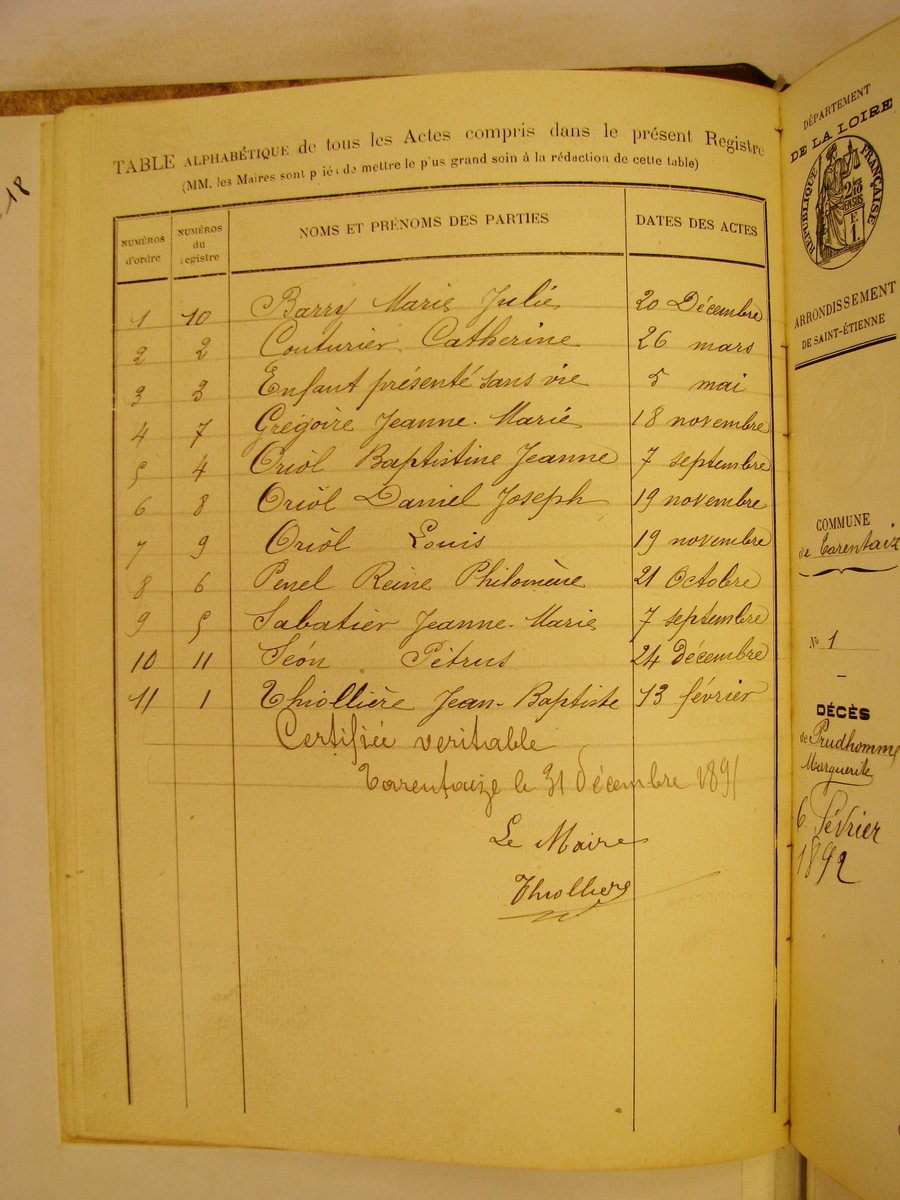 18
TABLE ALPHABÉTIQUE de tous les Actes compris dans le présent Registre
(MM. les Maires sont priés de mettre le plus grand soin à la rédaction de cette table)
NUMÉROS d'ordre NUMÉROS du registre NOMS ET PRÉNOMS DES PARTIES DATES DES ACTES
1 10 Barry Marie Julie 20 Décembre
2 2 Couturier Catherine 26 mars
3 3 Enfant présenté sans vie 5 mai
4 7 Grégoire Jeanne-Marie 18 novembre
5 4 Oriol Baptistine Jeanne 7 septembre
6 8 Oriol Daniel Joseph 19 novembre
7 9 Oriol Louis 19 novembre
8 6 Penel Reine Philomène 21 Octobre
9 5 Sabatier Jeanne-Marie 7 septembre
10 11 Séon Pétrus 24 décembre
11 1 Thiollière Jean-Baptiste 13 février
Certifiée veritable
Tarentaize le 31 décembre 1891
Le Maire
Thiolliere
DÉPARTEMENT
DE LA LOIRE
RÉPUBLIQUE FRANÇAISE
ARRONDISSEMENT
DE SAINT-ÉTIENNE
COMMUNE
de Tarentaize
N° 1
DÉCÈS
de Prudhomme
Marguerite
6 Février
1892